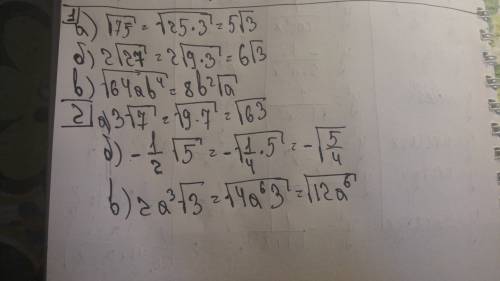 1 а) √75 = √25·3 = 5√3
б) 2√27 = 2√9·3 = 6√3
в) √64ab⁴ = 8b²√a
2 а) 3√7 = √9·7 = √63
б) -1/2 √5 = -√1/4·5 = -√5/4
в) 2a³√3 = √4a⁶3 = √12a⁶